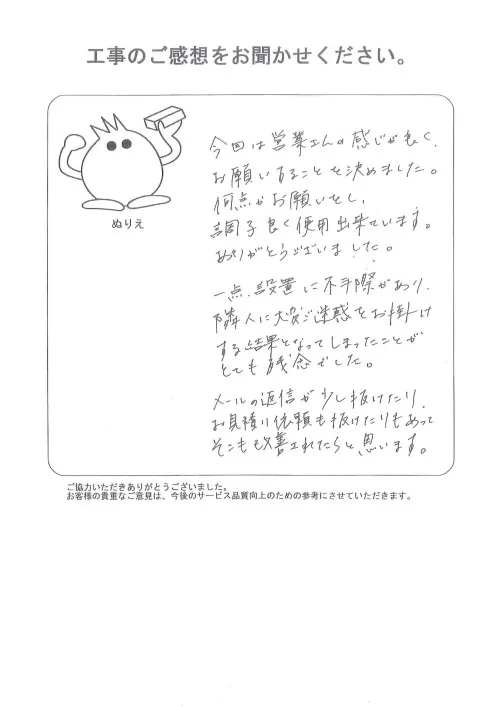 工事のご感想をお聞かせください。
ぬりえ
今回は営業さんの感じが良く、
お願いすることを決めました。
何点かお願いをし、
調子良く使用出来ています。
ありがとうございました。
一点、設置に不手際があり、
隣人に大変ご迷惑をお掛け
する結果となってしまったことが
とても残念でした。
メールの返信が少し抜けたり、
お見積り依頼も抜けたりもあって
そこも改善されたらと思います。
ご協力いただきありがとうございました。
お客様の貴重なご意見は、今後のサービス品質向上のための参考にさせていただきます。